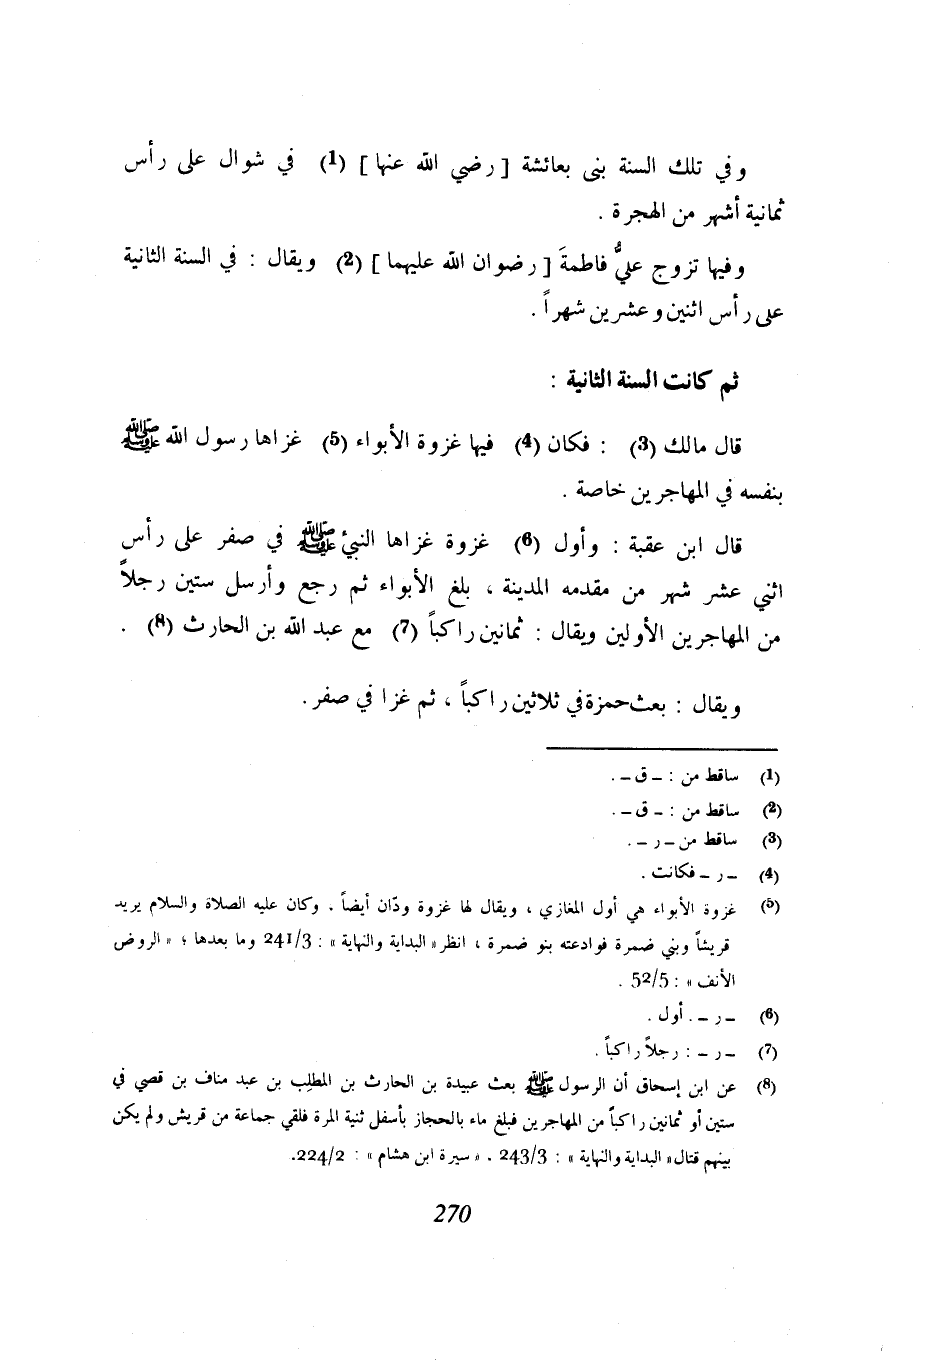 وفي تلك السنة بنى بعائشة [ رضي الله عنها ] (1) في شوال على رأس
ثمانية أشهر من الهجرة .
وفيها تزوج عليٌّ فاطمةَ [ رضوان الله عليهما ] (2) ويقال : في السنة الثانية
على رأس اثنين وعشرين شهراً .
ثم كانت السنة الثانية :
قال مالك (3) : فكان (4) فيها غزوة الأبواء (5) غزاها رسول الله ﷺ
بنفسه في المهاجرين خاصة .
قال ابن عقبة : وأول (6) غزوة غزاها النبيُّ ﷺ في صفر على رأس
اثني عشر شهر من مقدمه المدينة ، بلغ الأبواء ثم رجع وأرسل ستين رجلاً
من المهاجرين الأولين ويقال : ثمانين راكباً (7) مع عبد الله بن الحارث (8) .
ويقال : بعث حمزة في ثلاثين راكباً ، ثم غزا في صفر .
(1) ساقط من : – ق – .
(2) ساقط من : – ق – .
(3) ساقط من – ر – .
(4) – ر – فكانت .
(5) غزوة الأبواء هي أول المغازي ، ويقال لها غزوة ودّان أيضاً . وكان عليه الصلاة والسلام يريد
قريشاً وبني ضمرة فوادعته بنو ضمرة ، انظر « البداية والنهاية » : 241/3 وما بعدها ؛ « الروض
الأنف » : 52/5 .
(6) – ر – . أول .
(7) – ر – : رجلاً راكباً .
(8) عن ابن إسحاق أن الرسول ﷺ بعث عبيدة بن الحارث بن المطلب بن عبد مناف بن قصي في
ستين أو ثمانين راكباً من المهاجرين فبلغ ماء بالحجاز بأسفل ثنية المرة فلقي جماعة من قريش ولم يكن
بينهم قتال « البداية والنهاية » : 243/3 . « سيرة ابن هشام » : 224/2.
270